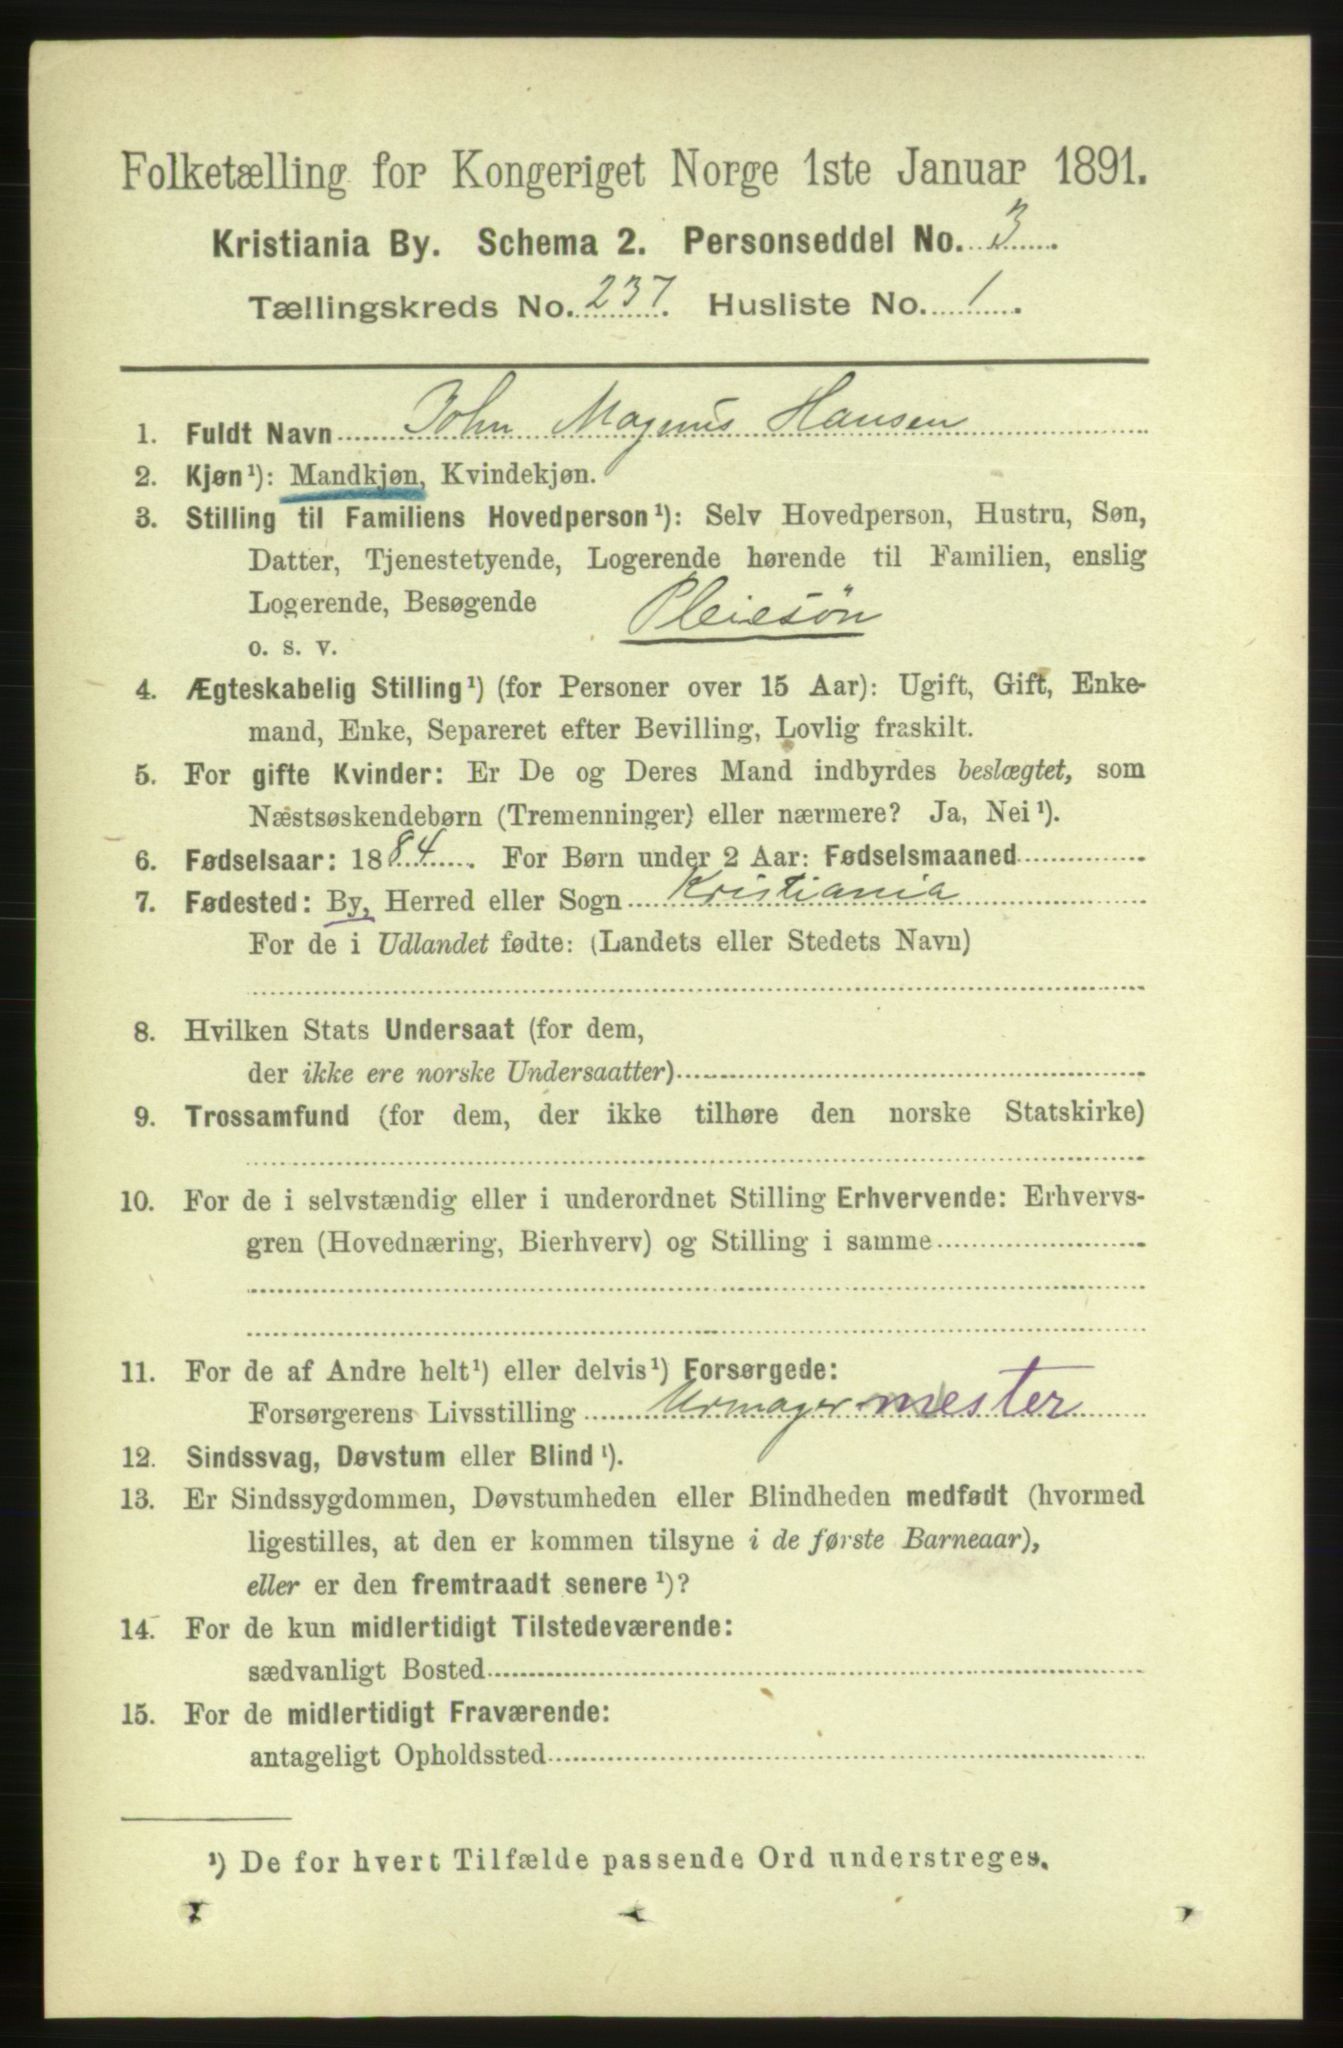 Folketælling for Kongeriget Norge 1ste Januar 1891.
Kristiania By. Schema 2. Personseddel No. 3.
Tællingskreds No. 237. Husliste No. 1.
1. Fuldt Navn John Magnus Hansen
2. Kjøn¹): Mandkjøn, Kvindekjøn.
3. Stilling til Familiens Hovedperson¹): Selv Hovedperson, Hustru, Søn,
Datter, Tjenestetyende, Logerende hørende til Familien, enslig
Logerende, Besøgende Pleiesøn
o. s. v.
4. Ægteskabelig Stilling¹) (for Personer over 15 Aar): Ugift, Gift, Enke-
mand, Enke, Separeret efter Bevilling, Lovlig fraskilt.
5. For gifte Kvinder: Er De og Deres Mand indbyrdes beslægtet, som
Næstsøskendebørn (Tremenninger) eller nærmere? Ja, Nei¹).
6. Fødselsaar: 1884. For Børn under 2 Aar: Fødselsmaaned
7. Fødested: By, Herred eller Sogn Kristiania
For de i Udlandet fødte: (Landets eller Stedets Navn)
8. Hvilken Stats Undersaat (for dem,
der ikke ere norske Undersaatter)
9. Trossamfund (for dem, der ikke tilhøre den norske Statskirke)
10. For de i selvstændig eller i underordnet Stilling Erhvervende: Erhvervs-
gren (Hovednæring, Bierhverv) og Stilling i samme
11. For de af Andre helt¹) eller delvis¹) Forsørgede:
Forsørgerens Livsstilling Urmagermester
12. Sindssvag, Døvstum eller Blind¹).
13. Er Sindssygdommen, Døvstumheden eller Blindheden medfødt (hvormed
ligestilles, at den er kommen tilsyne i de første Barneaar),
eller er den fremtraadt senere¹)?
14. For de kun midlertidigt Tilstedeværende:
sædvanligt Bosted
15. For de midlertidigt Fraværende:
antageligt Opholdssted
¹) De for hvert Tilfælde passende Ord understreges.